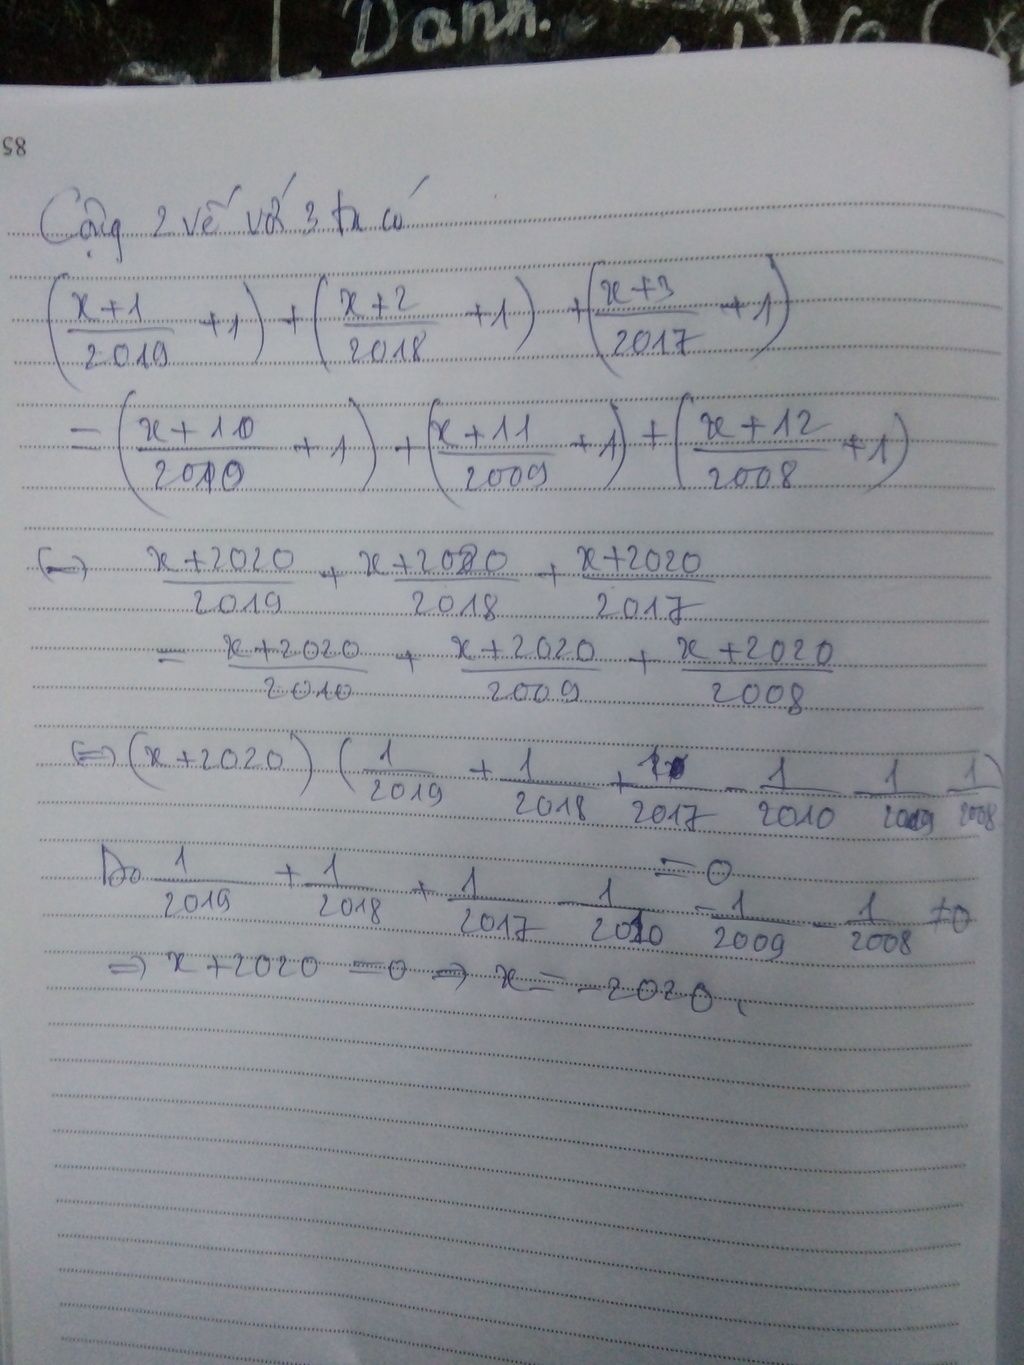 Danh.
85
Cộng 2 vế với 3 ta có
(x+1/2019 +1) + (x+2/2018 +1) + (x+3/2017 +1)
= (x+10/2010 +1) + (x+11/2009 +1) + (x+12/2008 +1)
(=) x+2020/2019 + x+2020/2018 + x+2020/2017
= x+2020/2010 + x+2020/2009 + x+2020/2008
(=) (x+2020) (1/2019 + 1/2018 + 1/2017 - 1/2010 - 1/2009 - 1/2008)
= 0
Do 1/2019 + 1/2018 + 1/2017 - 1/2010 - 1/2009 - 1/2008 ≠0
=) x+2020 =0 =) x= -2020.